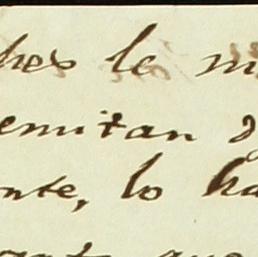 hes le m
emitan d
nte, lo ha